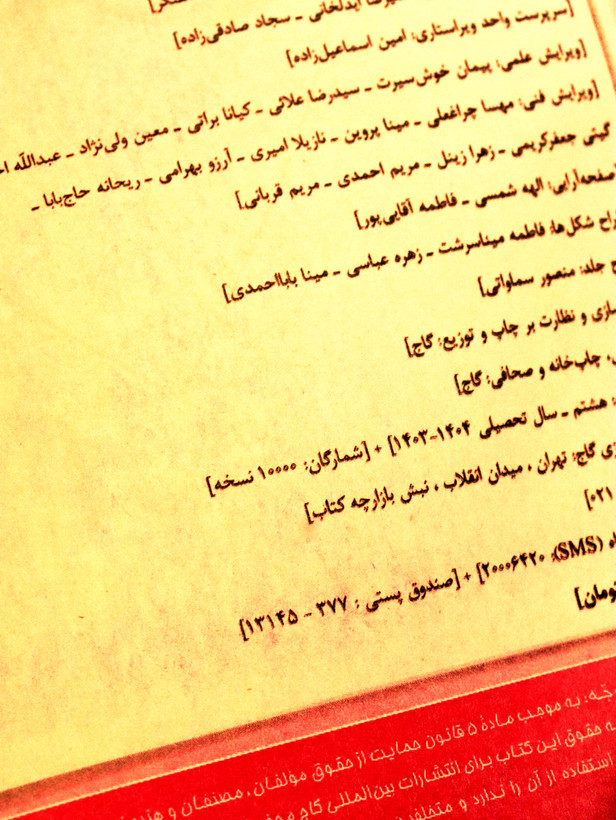 ایدلخانی ـ سجاد صادقی‌زاده]
[سرپرست واحد ویراستاری: امین اسماعیل‌زاده]
[ویرایش علمی: پیمان خوش‌سیرت ـ سیدرضا علائی ـ کیانا براتی ـ معین ولی‌نژاد ـ عبداللّه
[ویرایش فنی: مهسا چراغعلی ـ مینا پروین ـ نازیلا امیری ـ آرزو بهرامی ـ ریحانه حاج‌بابا ـ
گیتی جعفرکریمی ـ زهرا زینل ـ مریم احمدی ـ مریم قربانی]
صفحه‌آرایی: الهه شمسی ـ فاطمه آقایی‌پور]
شکل‌ها: فاطمه میناسرشت ـ زهره عباسی ـ مینا بابااحمدی]
جلد: منصور سماواتی]
و نظارت بر چاپ و توزیع: گاج]
چاپ‌خانه و صحافی: گاج]
هشتم ـ سال تحصیلی ۱۴۰۴-۱۴۰۳] + [شمارگان: ۱۰۰۰۰ نسخه]
گاج: تهران ، میدان انقلاب ، نبش بازارچه کتاب]
۰۲۱]
(SMS): ۲۰۰۰۶۴۲۰] + [صندوق پستی : ۳۷۷ - ۱۳۱۴۵]
تومان]
به موجب مادهٔ ۵ قانون حمایت از حقوق مولفان، مصنفان و
حقوق این کتاب برای انتشارات بین‌المللی گاج
استفاده از آن را ندارد و